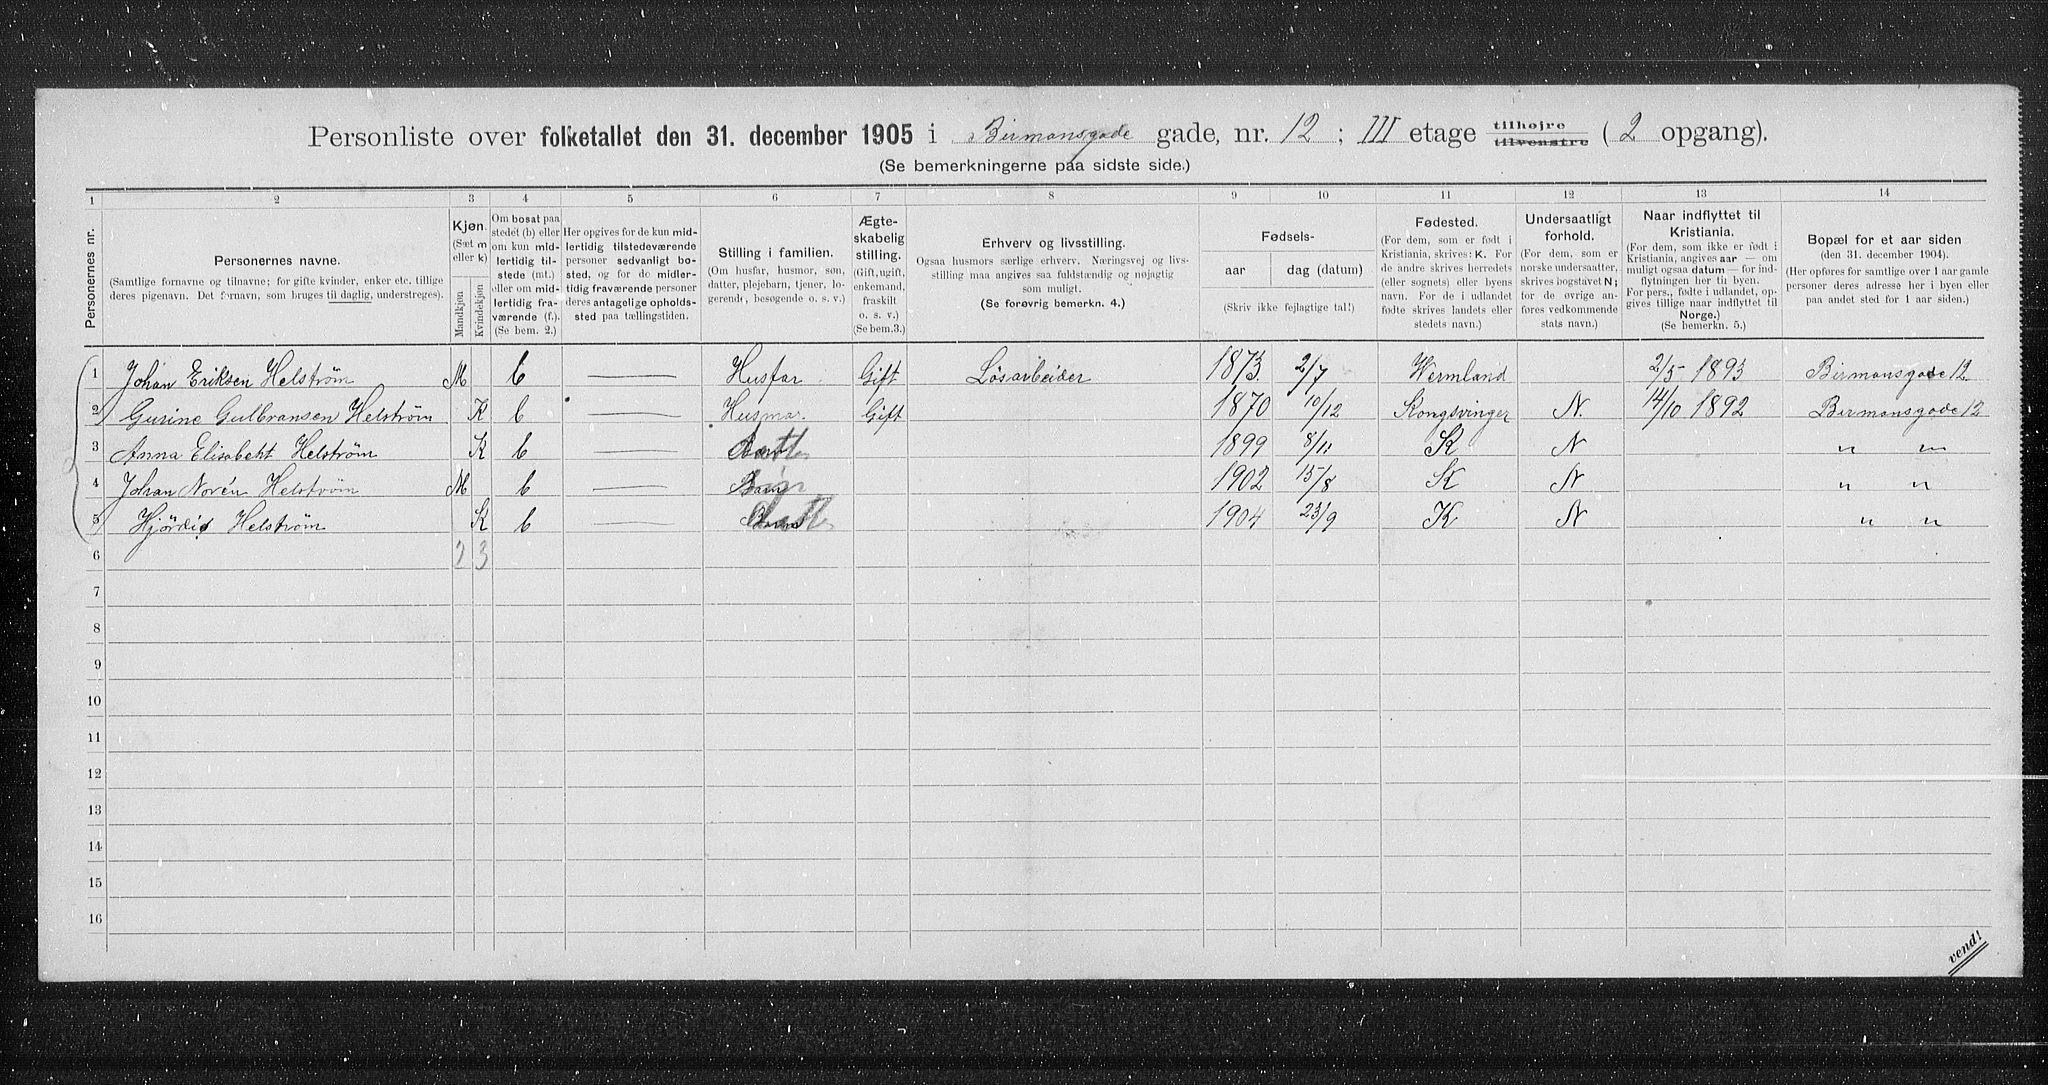 Personliste over folketallet den 31. december 1905 i Birmansgade gade, nr. 12 ; III etage tilhøjre tilvenstre ( 2 opgang).
(Se bemerkningerne paa sidste side.)
1 2 3 4 5 6 7 8 9 10 11 12 13 14
Personernes nr.
Personernes navne.
(Samtlige fornavne og tilnavne; for gifte kvinder, enker etc. tillige
deres pigenavn. Det fornavn, som bruges til daglig, understreges).
Kjøn.
(Sæt m
eller k)
Mandkjøn
Kvindekjøn
Om bosat paa
stedet (b) eller
om kun mid-
lertidig til-
stede (mt.)
eller om mid-
lertidig fra-
værende (f.).
(Se bem. 2.)
Her opgives for de kun mid-
lertidig tilstedeværende
personer sedvanligt bo-
sted, og for de midler-
tidig fraværende personer
deres antagelige opholds-
sted paa tællingstiden.
Stilling i familien.
(Om husfar, husmor, søn,
datter, plejebarn, tjener, lo-
gerende, besøgende o. s. v.)
Ægte-
skabelig
stilling.
(Gift, ugift,
enkemand,
fraskilt
o. s. v.)
(Se bem.3.)
Erhverv og livsstilling.
Ogsaa husmors særlige erhverv. Næringsvej og livs-
stilling maa angives saa fuldstændig og nøjagtig
som muligt.
(Se forøvrig bemerkn. 4.)
Fødsels-
aar
dag (datum)
(Skriv ikke fejlagtige tal!)
Fødested.
(For dem, som er født i
Kristiania, skrives: K. For
de andre skrives herredets
(eller sognets) eller byens
navn. For de i udlandet
fødte skrives landets eller
stedets navn.)
Undersaatligt
forhold.
(For dem, som er
norske undersaatter,
skrives bogstavet N;
for de øvrige an-
føres vedkommende
stats navn.)
Naar indflyttet til
Kristiania.
(For dem, som ikke er født i
Kristiania, angives aar — om
muligt ogsaa datum — for ind-
flytningen her til byen.
For pers., fødte i udlandet, op-
gives tillige naar indflyttet til
Norge.)
(Se bemerkn. 5.)
Bopæl for et aar siden
(den 31. december 1904).
(Her opføres for samtlige over 1 aar gamle
personer deres adresse her i byen eller
paa andet sted for 1 aar siden.)
1 Johan Eriksen Helstrøm M b — Husfar. Gift Løsarbeider 1873. 2/7 Wermland 2/5 1893 Birmansgade 12
2 Gusine Gulbransen Helstrøm K b — Husmor Gift 1870 10/12 Kongsvinger N. 14/10 1892 Birmansgade 12
3 Anna Elisabeht Helstrøm K b — Datter 1899 8/11 K N " "
4 Johan Norén Helstrøm M b — Barn Søn 1902 15/8 K N " "
5 Hjørdis Helstrøm K b — Barn Datter 1904 23/9 K N " "
6 2 3
7
8
9
10
11
12
13
14
15
16
vend!